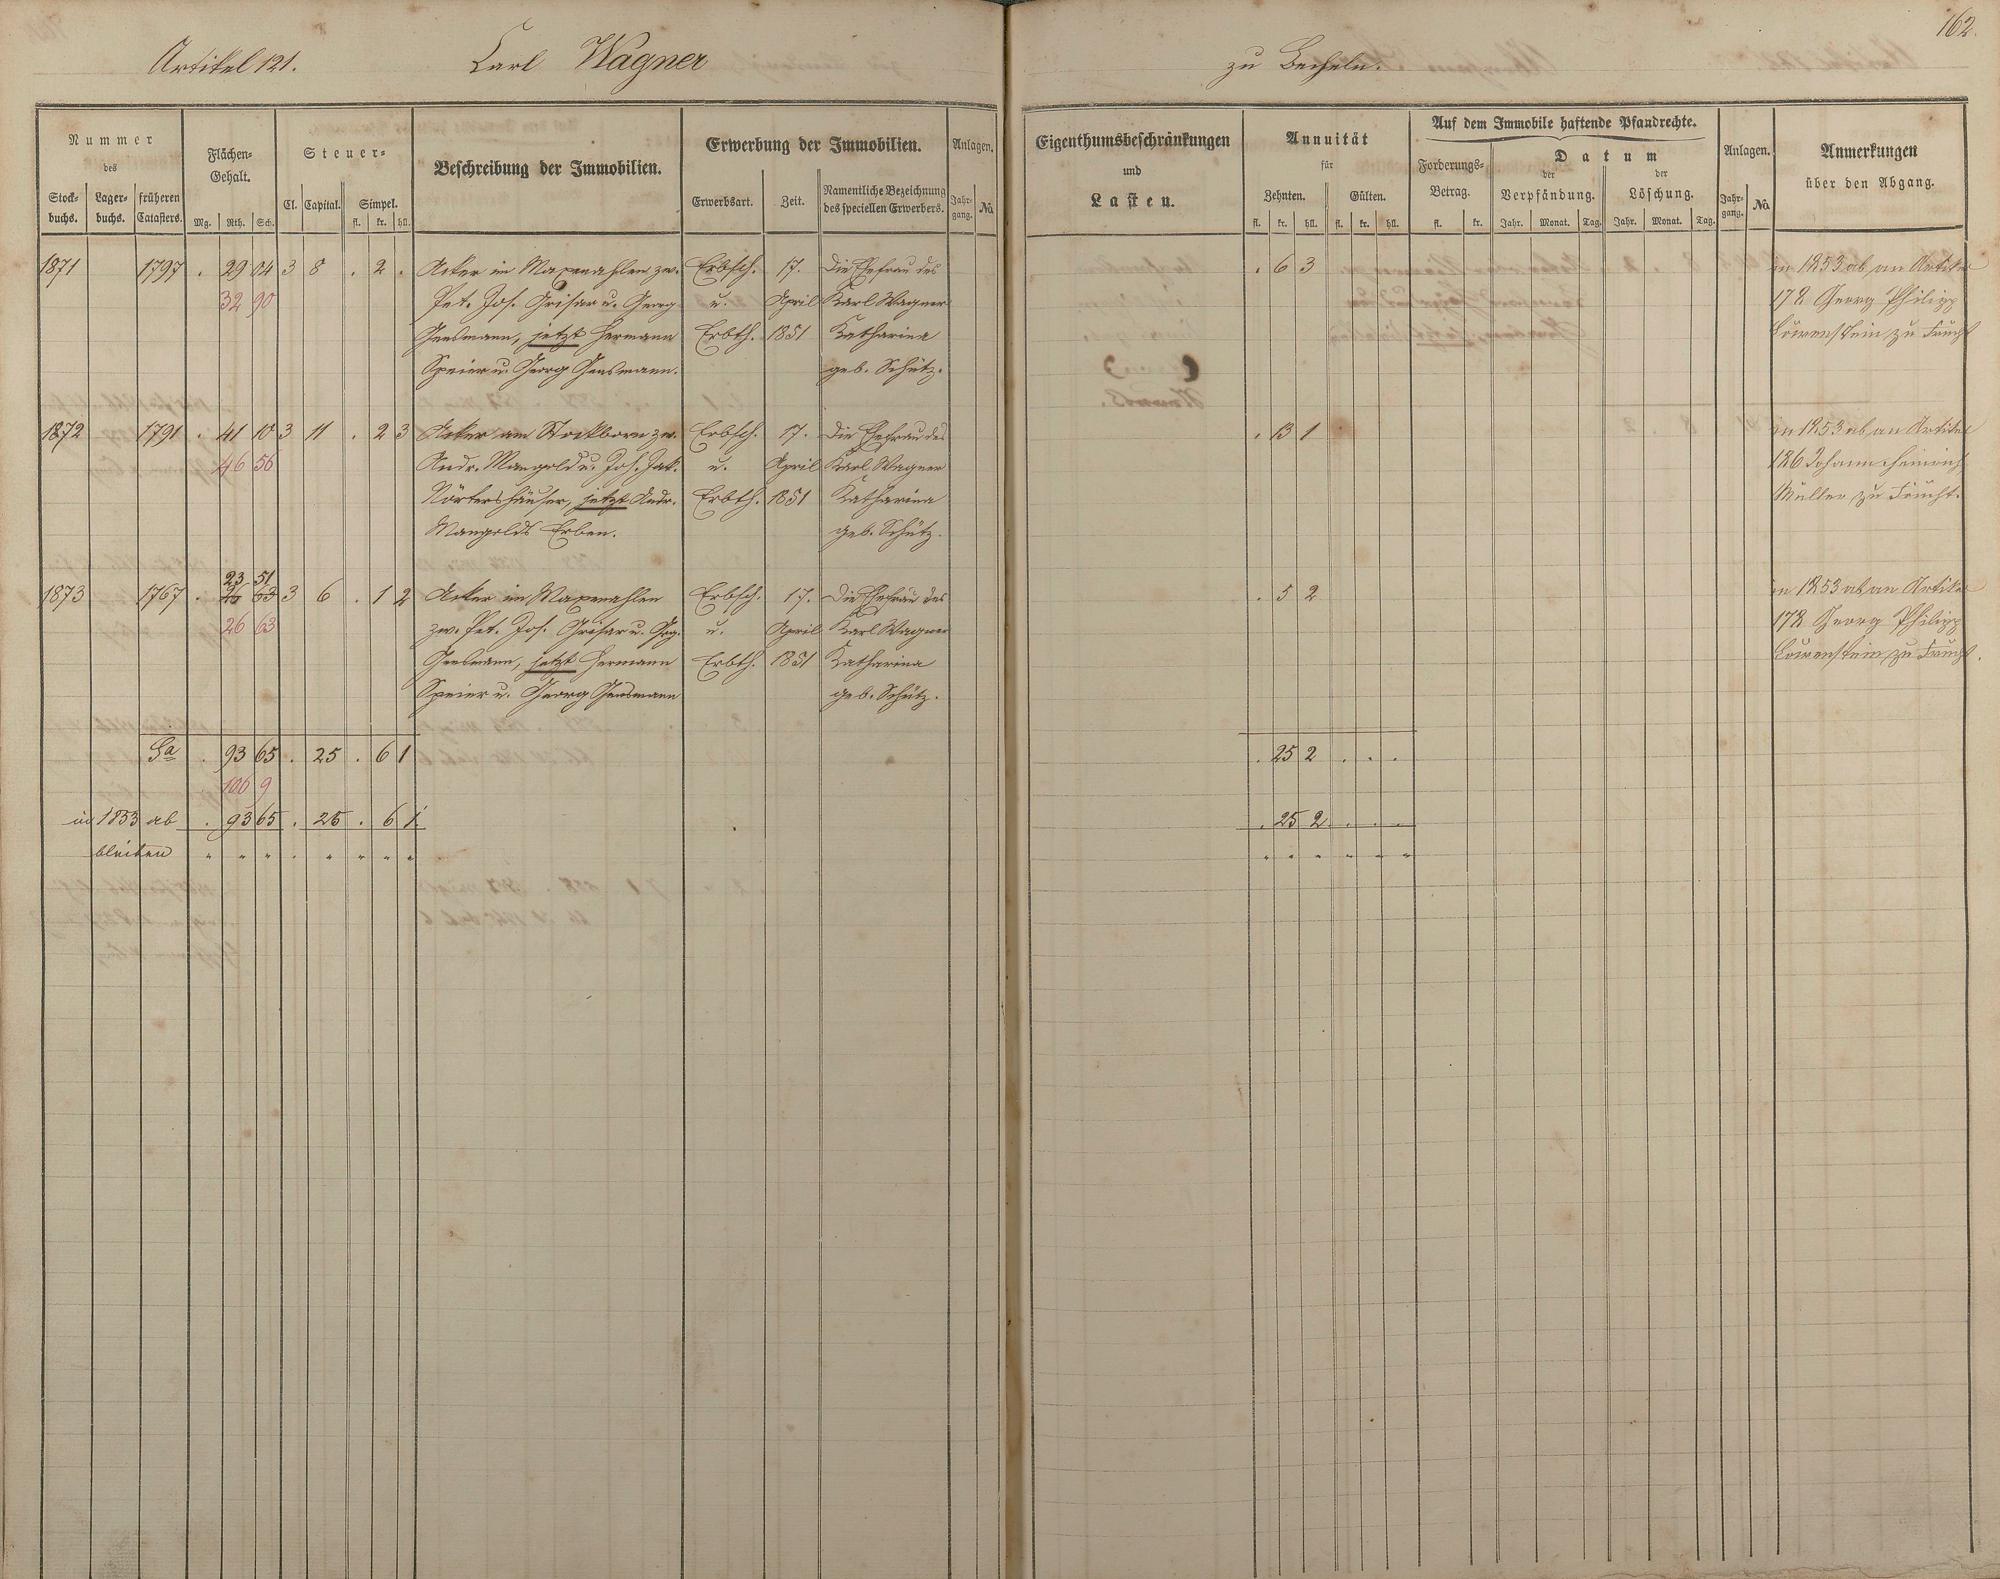 162.
Artikel 121. Carl Wagner zu Becheln.
Nummer
des
Stock-
buchs.
Lager-
buchs.
früheren
Catasters.
Flächen-
Gehalt.
Mg. Rth. Sch.
Steuer-
Cl. Capital. Simpel.
fl. kr. hll.
Beschreibung der Immobilien.
Erwerbung der Immobilien.
Erwerbsart. Zeit.
Namentliche Bezeichnung
des speciellen Erwerbers.
Anlagen.
Jahr-
gang.
No.
Eigenthumsbeschränkungen
und
Lasten.
Annuität
für
Zehnten. Gülten.
fl. kr. hll. fl. kr. hll.
Auf dem Immobile haftende Pfandrechte.
Forderungs-
Betrag.
fl. kr.
Datum
der
Verpfändung.
Jahr. Monat. Tag.
der
Löschung.
Jahr. Monat. Tag.
Anlagen.
Jahr-
gang.
No.
Anmerkungen
über den Abgang.
1871 1797 . 29 04 3 8 . 2 . Acker im Maxenahlen zw. Erbsch. 17. Die Ehefrau des . 6 3 in 1853 ab an Artikel
32 90 Pet. Jos. Grisar u. Georg u. April Karl Wagner 178 Georg Philipp
Gensmann, jetzt Hermann Erbth. 1851 Katharina Löwenstein zu Frücht
Speier u. Georg Gensmann. geb. Schütz.
1872 1791 . 41 10 3 11 . 2 3 Acker am Stockborn zw. Erbsch. 17. Die Ehefrau des . 13 1 in 1853 ab an Artikel
46 56 Andr. Mangold u. Joh. Jak. u. April Karl Wagner 186 Johann Heinrich
Nörtershäuser, jetzt Andr. Erbth. 1851 Katharina Müller zu Frücht.
Mangolds Erben. geb. Schütz.
23 51
1873 1767 . 26 63 3 6 . 1 2 Acker im Maxenahlen Erbsch. 17. Die Ehefrau des . 5 2 in 1853 ab an Artikel
26 63 zw. Pet. Jos. Grisar u. Grg. u. April Karl Wagner 178 Georg Philipp
Gensmann, jetzt Hermann Erbth. 1851 Katharina Löwenstein zu Frücht.
Speier u. Georg Gensmann geb. Schütz.
Sa . 93 65 . 25 . 6 1 . 25 2 . . .
106 9
in 1853 ab . 93 65 . 25 . 6 1 . 25 2 . . .
bleiben " " " . " " " " " " " " " "